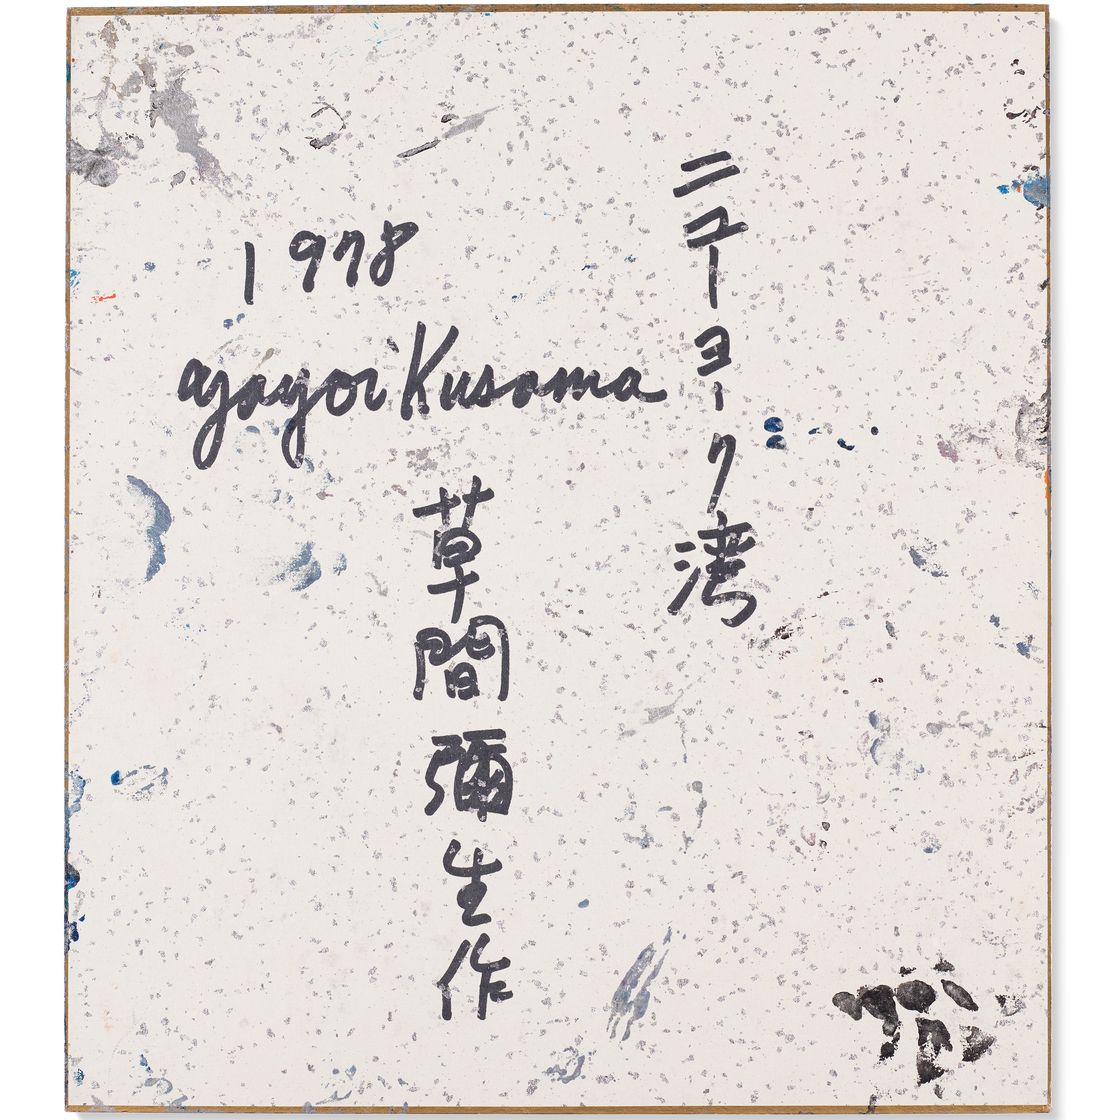 ニューヨーク湾
1978
yayoi Kusama
草間彌生作